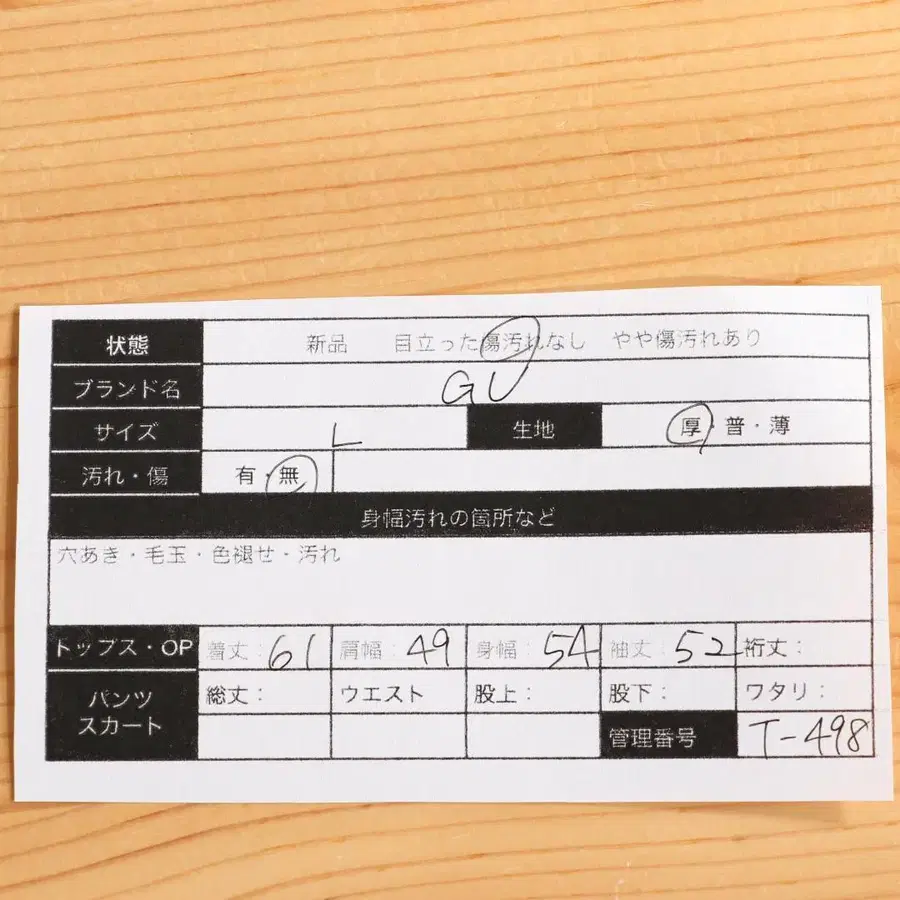 状態 新品 目立った傷汚れなし やや傷汚れあり
ブランド名 GU
サイズ L 生地 厚・普・薄
汚れ・傷 有・無
身幅汚れの箇所など
穴あき・毛玉・色褪せ・汚れ
トップス・OP 着丈: 61 肩幅: 49 身幅: 54 袖丈: 52 裄丈:
パンツ スカート 総丈: ウエスト 股上: 股下: ワタリ:
管理番号 T-498